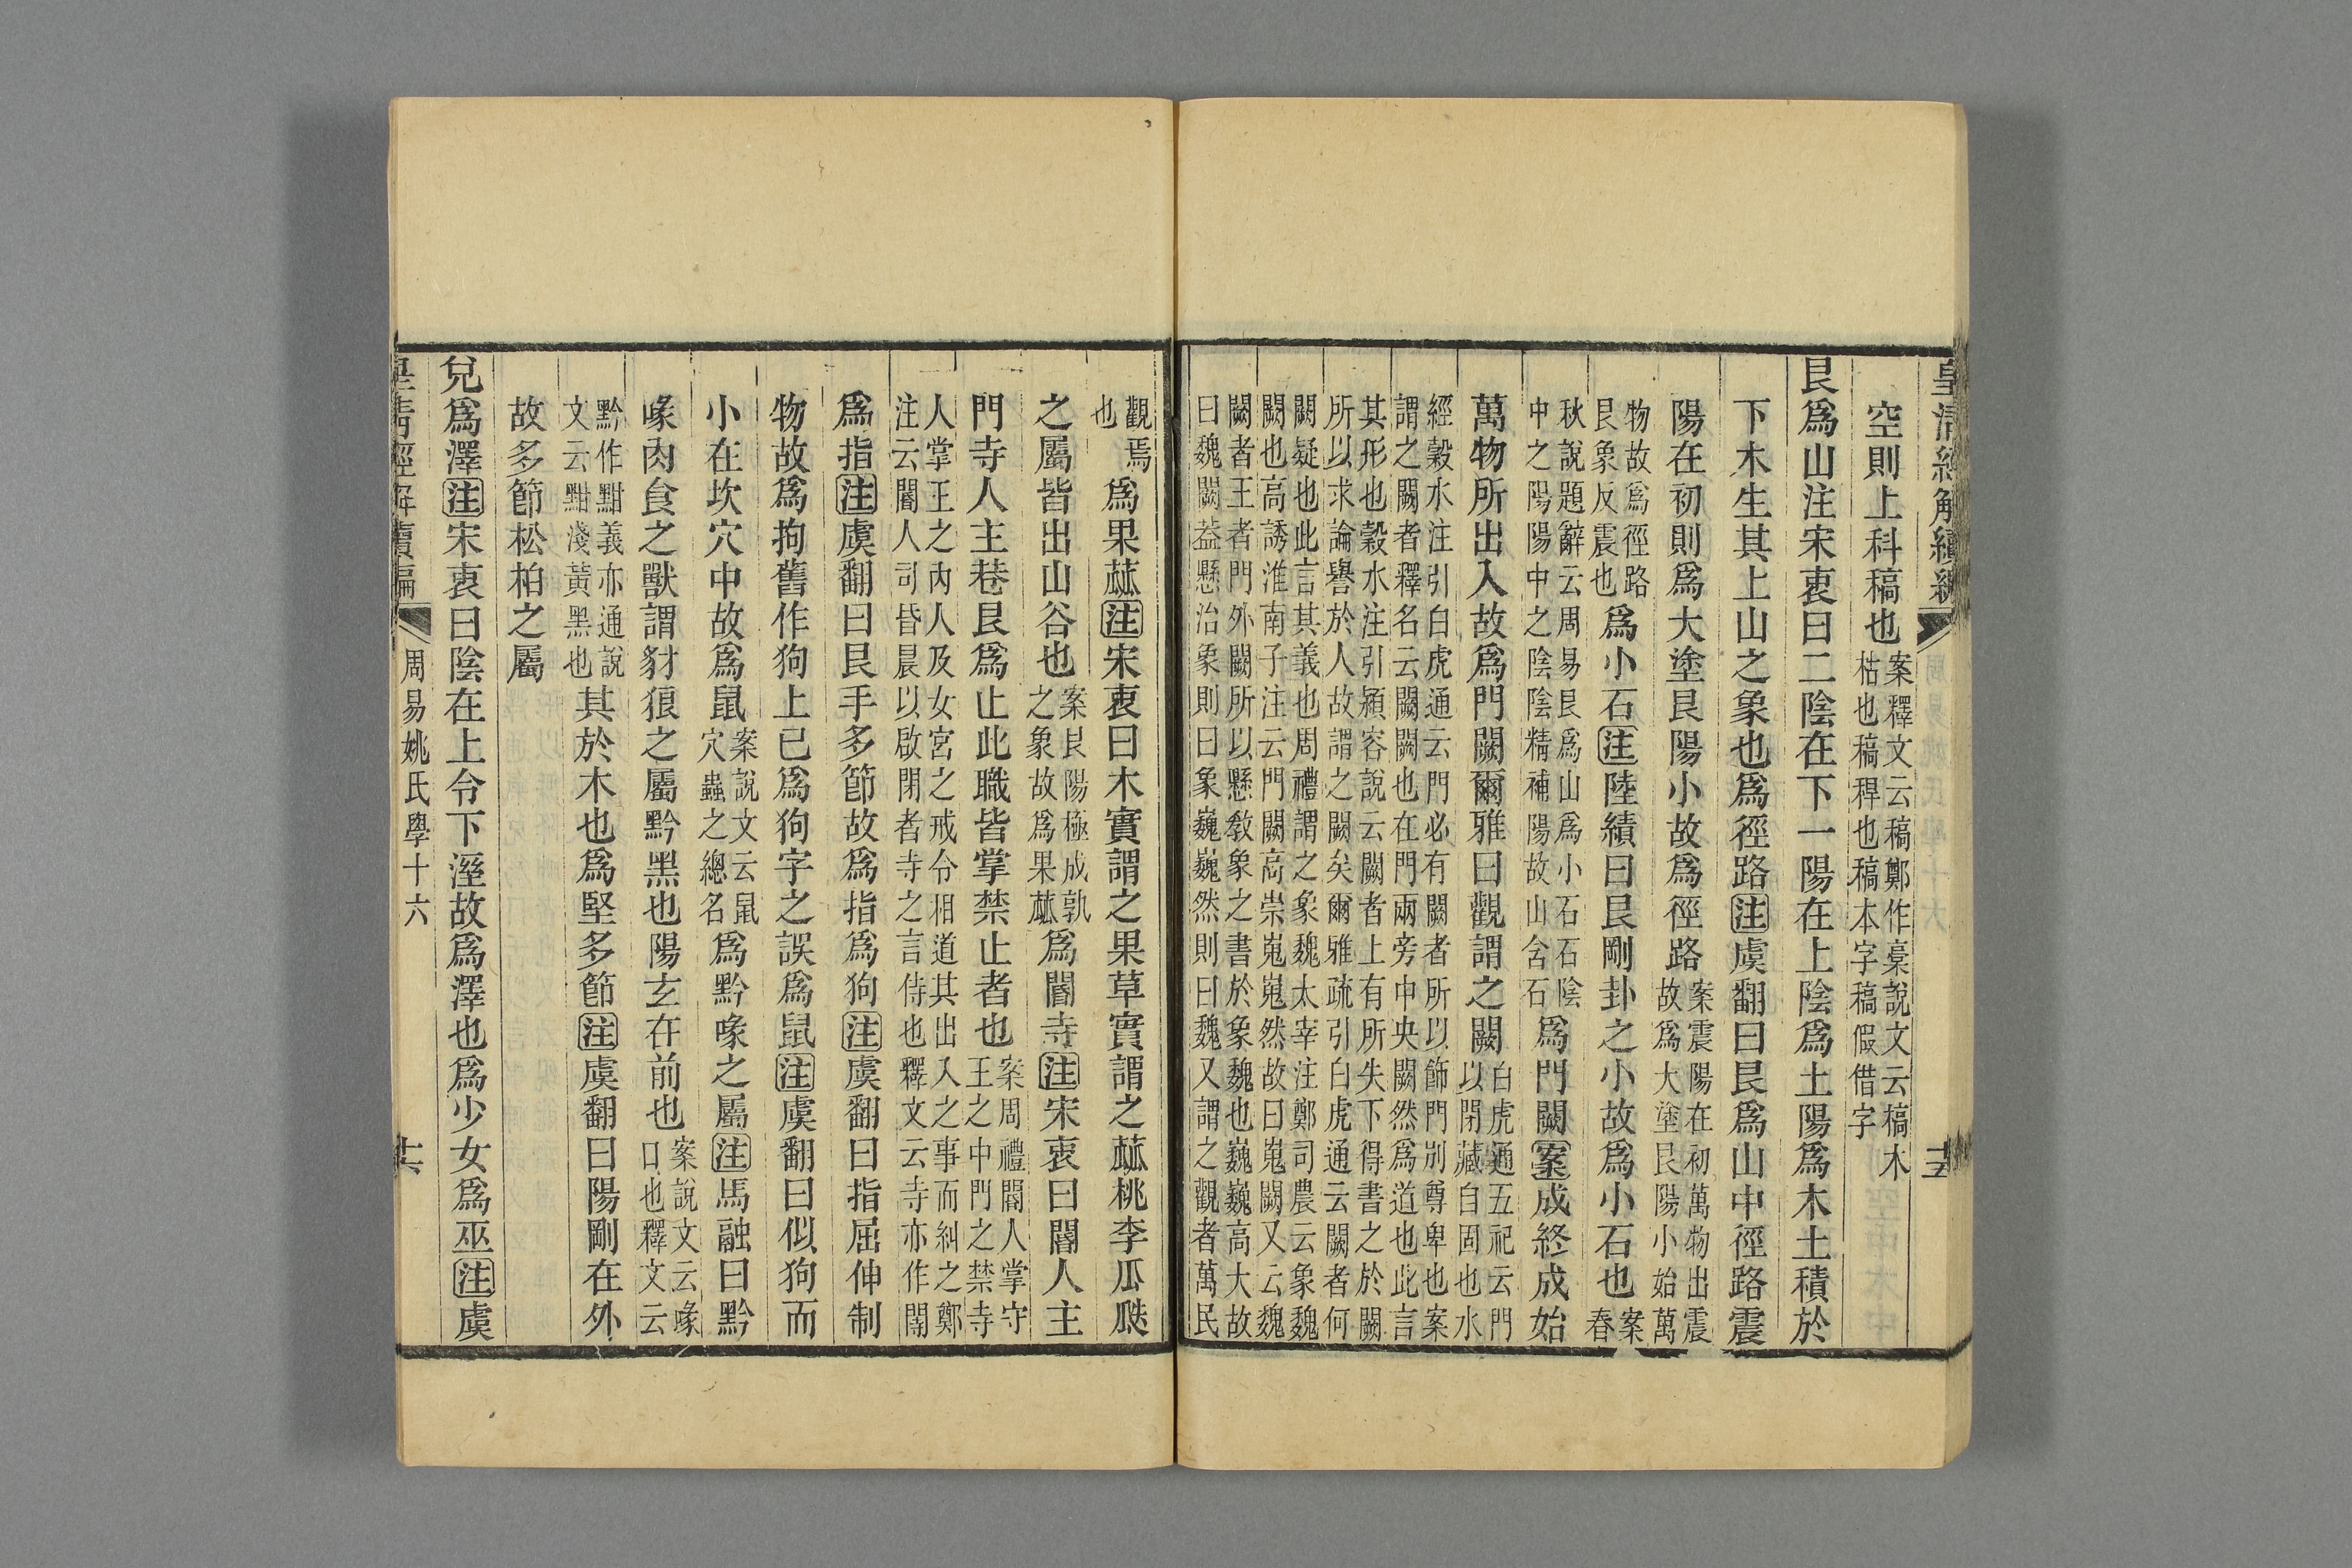 皇清經解續編
十五
空則上科稿也案釋文云稿鄭作槀說文云槁木
枯也稿稈也稿本字稿假借字
艮爲山注宋衷曰二陰在下一陽在上陰爲土陽爲木土積於
下木生其上山之象也爲徑路注虞翻曰艮爲山中徑路震
陽在初則爲大塗艮陽小故爲徑路案震陽在初萬物出震
故爲大塗艮陽小始萬
物故爲徑路
艮象反震也爲小石注陸績曰艮剛卦之小故爲小石也案
春
秋說題辭云周易艮爲山爲小石石陰
中之陽陽中之陰陰精補陽故山含石爲門闕案成終成始
萬物所出入故爲門闕爾雅曰觀謂之闕白虎通五祀云門
以閉藏自固也水
經穀水注引白虎通云門必有闕者所以飾門別尊卑也案
謂之闕者釋名云闕闕也在門兩旁中央闕然爲道也此言
其形也穀水注引潁容說云闕者上有所失下得書之於闕
所以求論譽於人故謂之闕矣爾雅疏引白虎通云闕者何
闕疑也此言其義也周禮謂之象魏太宰注鄭司農云象魏
闕也高誘淮南子注云門闕高崇嵬嵬然故曰嵬闕又云魏
闕者王者門外闕所以懸敎象之書於象魏也巍巍高大故
曰魏闕益懸治象則曰象巍巍然則曰魏又謂之觀者萬民
觀焉
也爲果蓏注宋衷曰木實謂之果草實謂之蓏桃李瓜瓞
之屬皆出山谷也案艮陽極成孰
之象故爲果蓏爲閽寺注宋衷曰閽人主
門寺人主巷艮爲止此職皆掌禁止者也案周禮閽人掌守
王之中門之禁寺
人掌王之內人及女宮之戒令相道其出入之事而糾之鄭
注云閽人司昏晨以啟閉者寺之言侍也釋文云寺亦作閽
爲指注虞翻曰艮手多節故爲指爲狗注虞翻曰指屈伸制
物故爲拘舊作狗上已爲狗字之誤爲鼠注虞翻曰似狗而
小在坎穴中故爲鼠案說文云鼠
穴蟲之總名爲黔喙之屬注馬融曰黔
喙肉食之獸謂豺狼之屬黔黑也陽玄在前也案說文云喙
口也釋文云
黔作黚義亦通說
文云黚淺黃黑也其於木也爲堅多節注虞翻曰陽剛在外
故多節松柏之屬
兌爲澤注宋衷曰陰在上令下溼故爲澤也爲少女爲巫注虞
皇清經解續編
周易姚氏學十六
十六